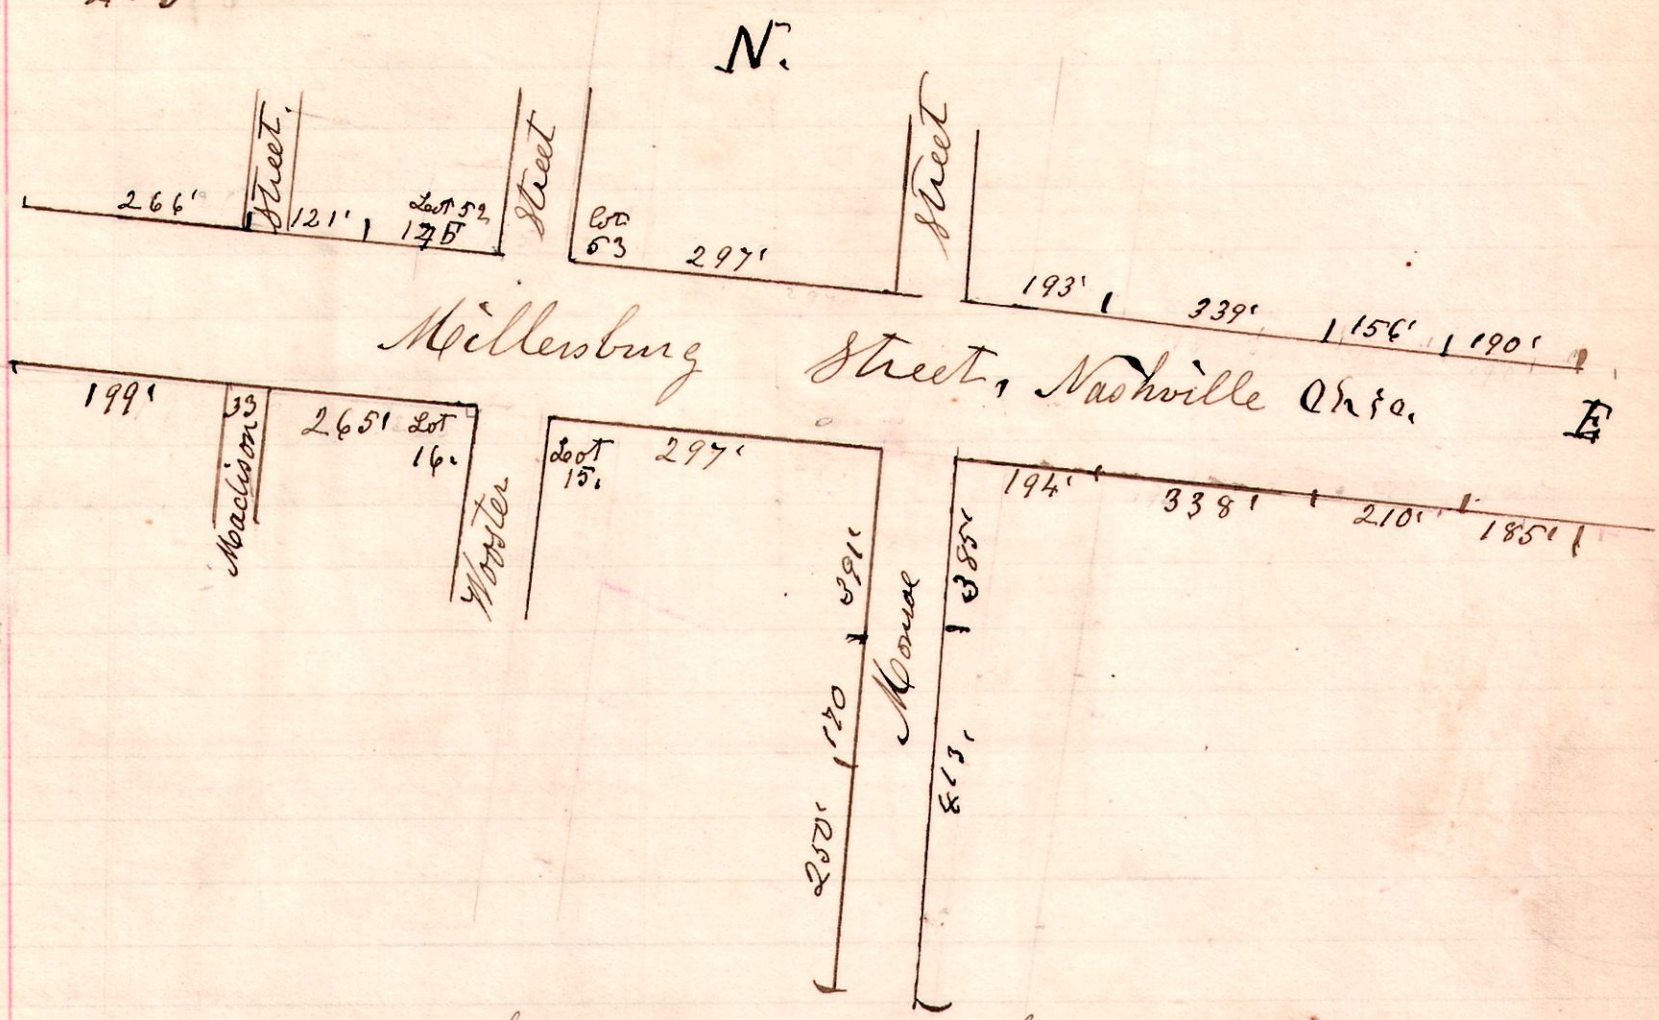 N.
Street.
Street
Street
266'
121'
Lot 52
Lot
53
297'
193'
339'
156'
190'
Millersburg Street, Nashville Ohio.
E
199'
33
265'
Lot
16.
Lot
15.
297'
194'
338'
210'
185'
Madison
Wooster
Monroe
391'
170
250'
385'
813'